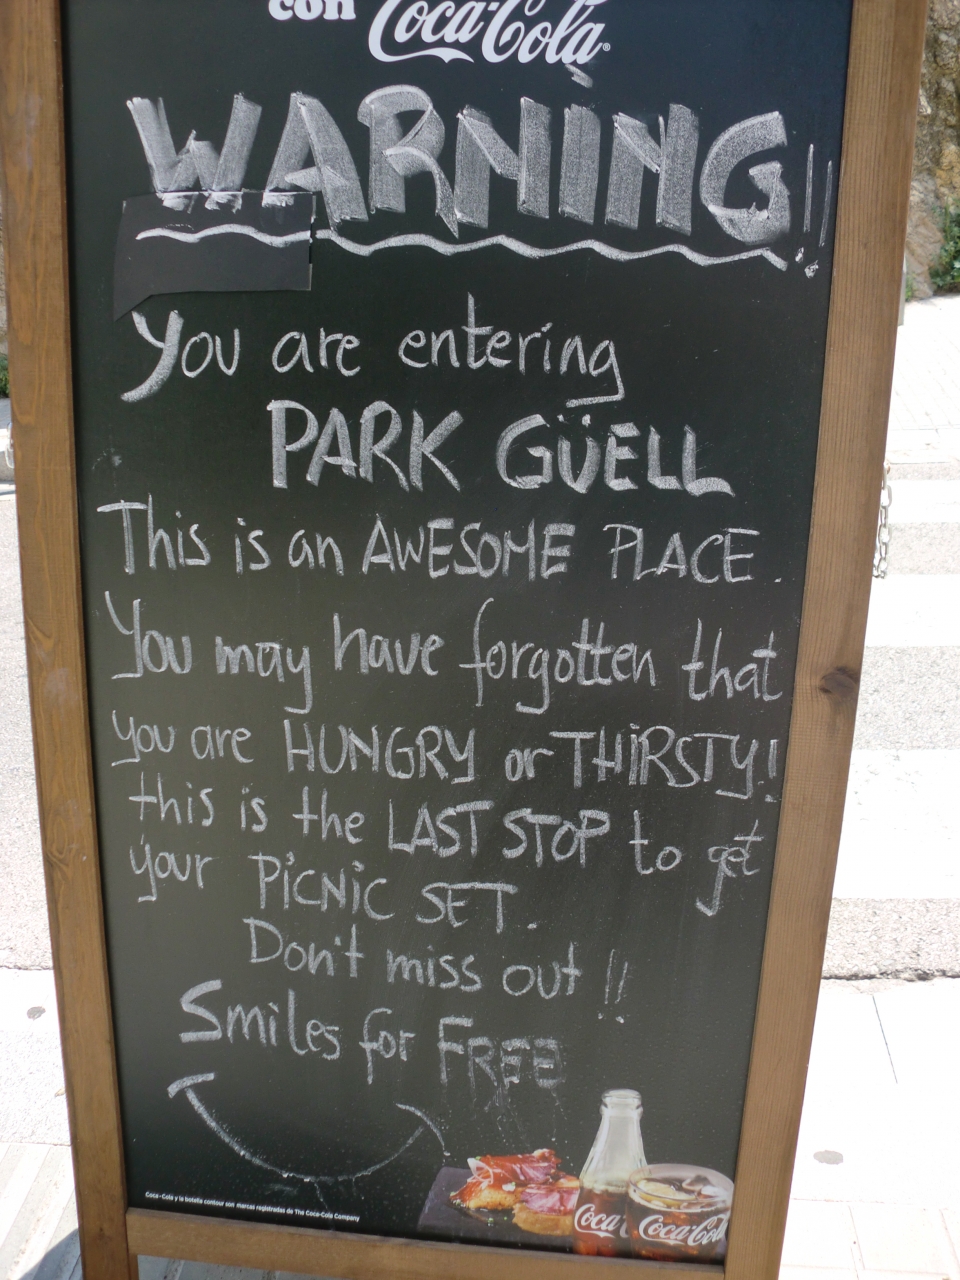 con Coca-Cola®
WARNING!!
You are entering
PARK GÜELL
This is an AWESOME PLACE.
You may have forgotten that
you are HUNGRY or THIRSTY!
this is the LAST STOP to get
your PiCNiC SET.
Don't miss out!!
Smiles for FREE
Coca-Cola y la botella contour son marcas registradas de The Coca-Cola Company
Coca-Cola